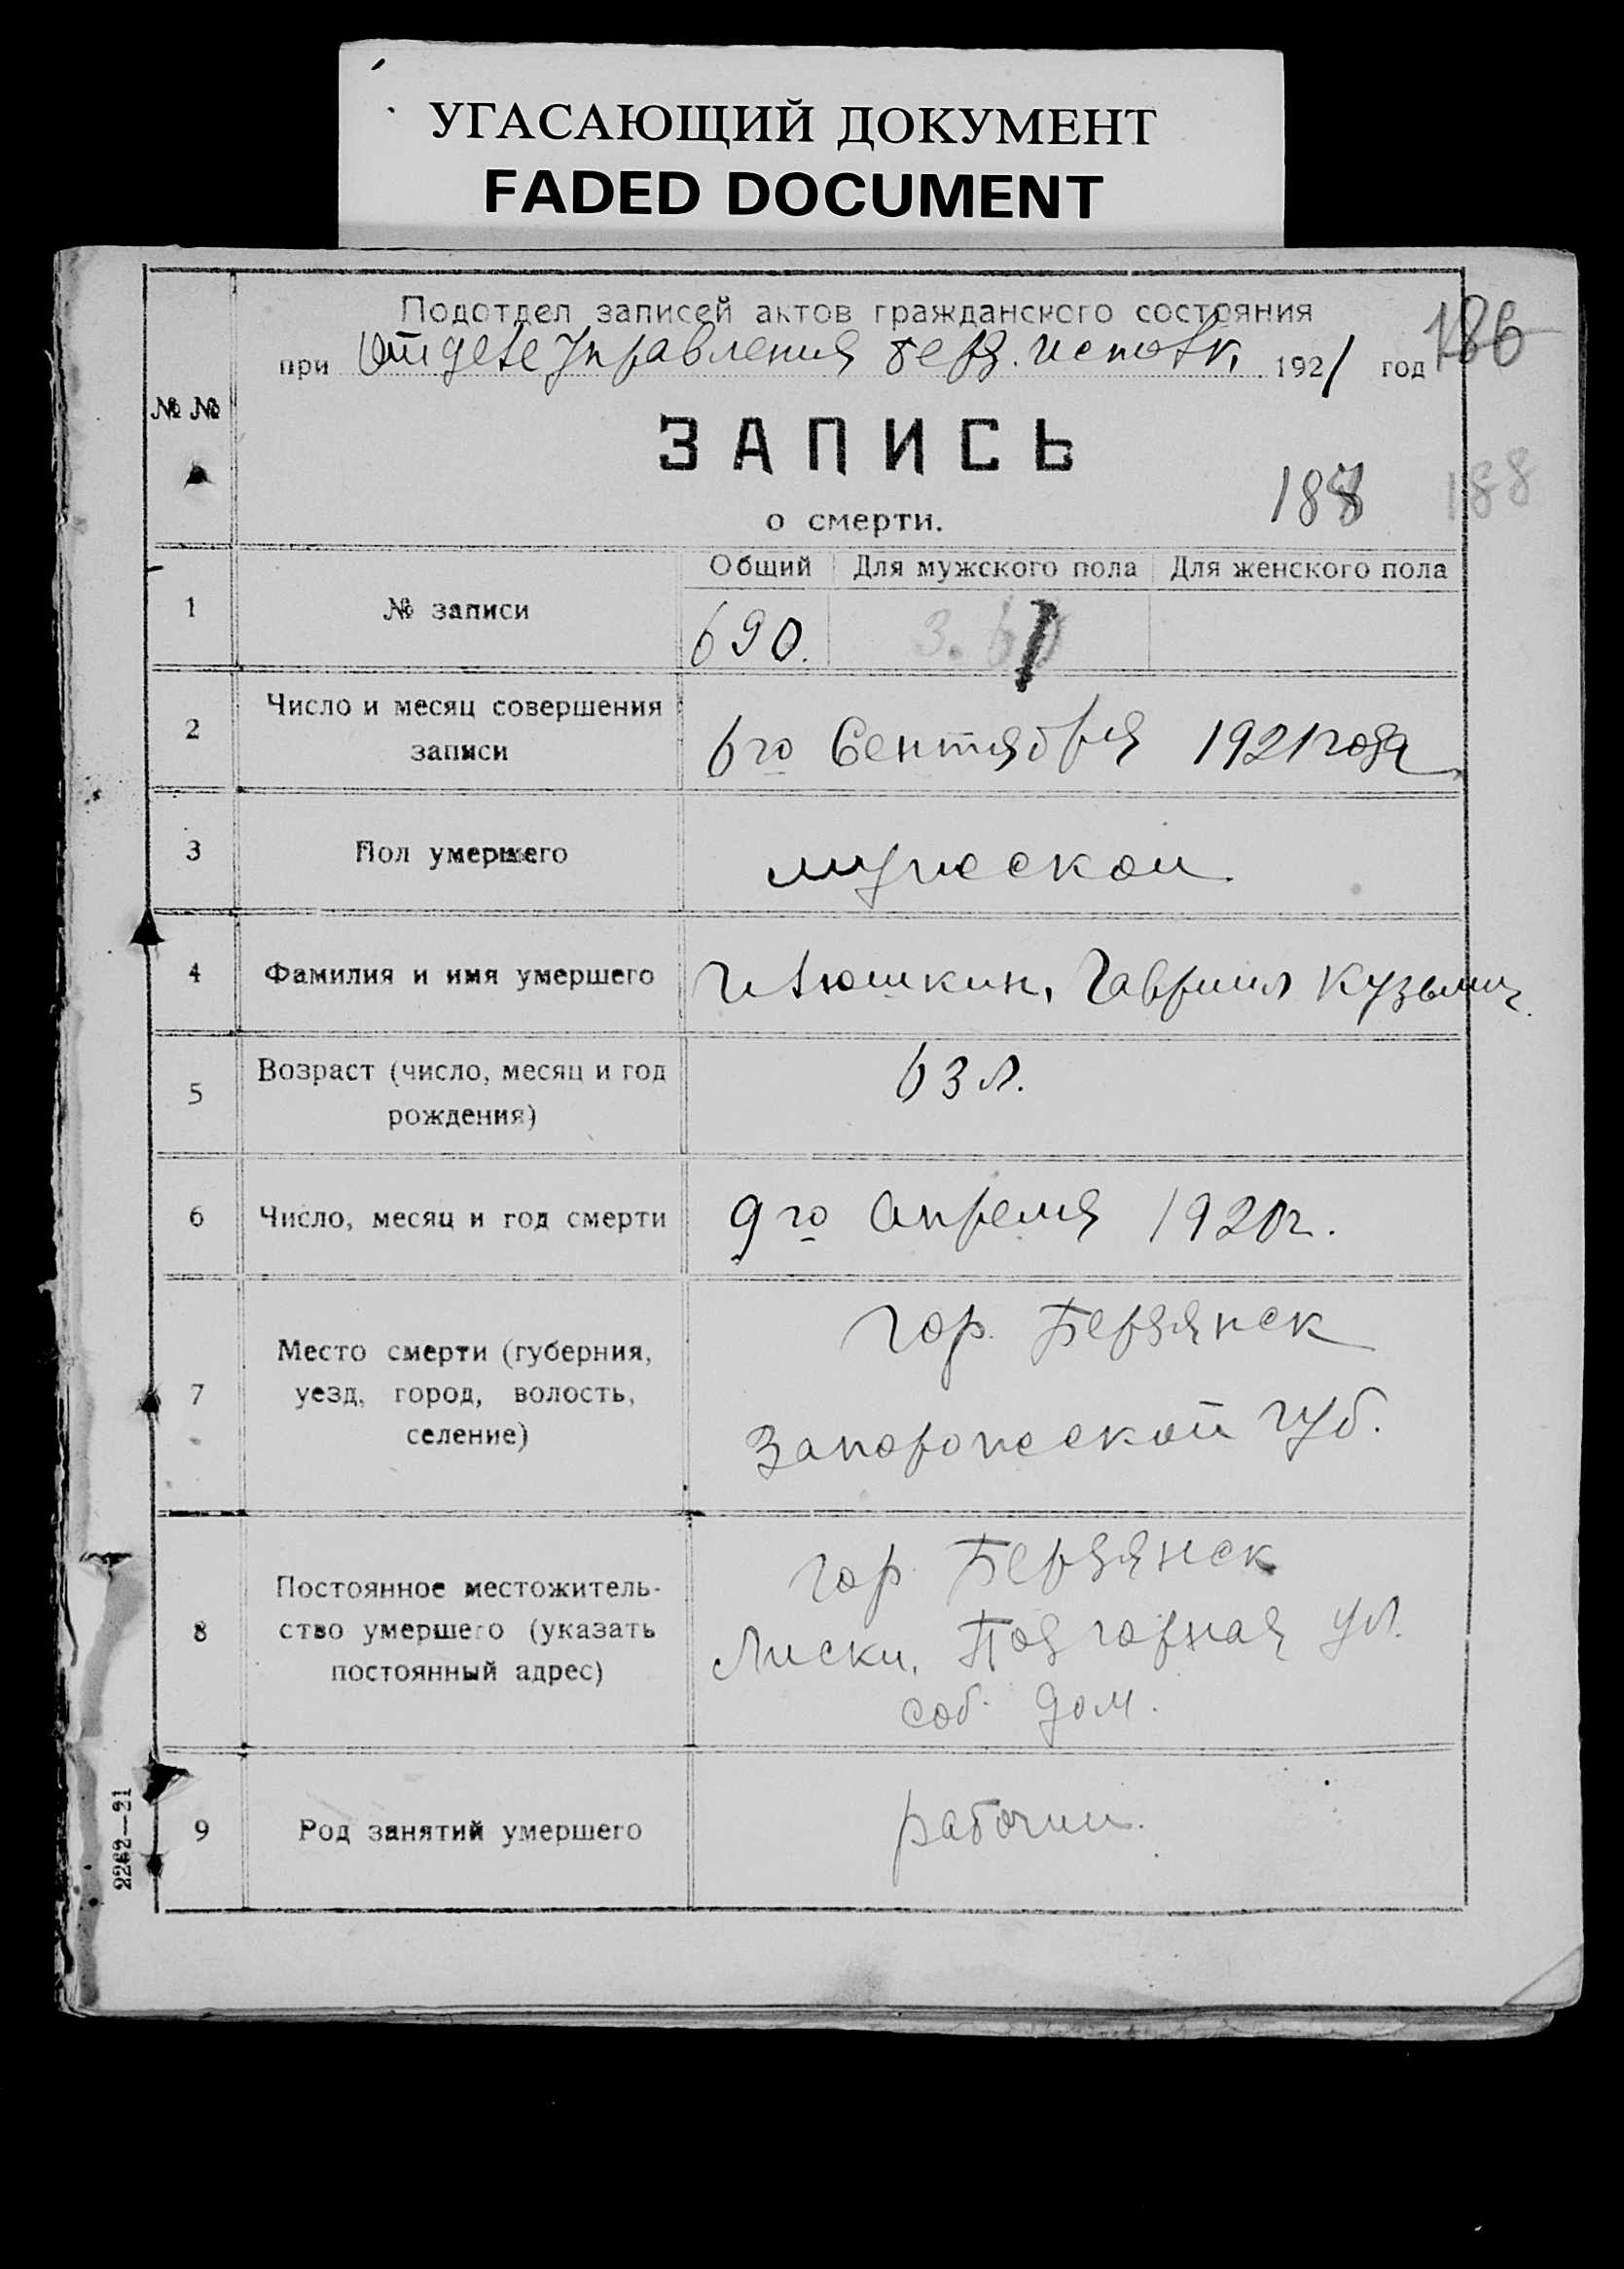 УГАСАЮЩИЙ ДОКУМЕНТ
FADED DOCUMENT
Подотдел записей актов гражданского состояния
при Отделе Управления Берд. исполк. 1921 год
186
№ №
ЗАПИСЬ
о смерти.
188
188
Общий Для мужского пола Для женского пола
1 № записи 690.
2 Число и месяц совершения записи 6го Сентября 1921 года
3 Пол умершего мужской
4 Фамилия и имя умершего Гаврриил Кузьмич
5 Возраст (число, месяц и год рождения) 63 л.
6 Число, месяц и год смерти 9го Апреля 1920 г.
7 Место смерти (губерния, уезд, город, волость, селение) гор. Бердянск
Запорожской губ.
8 Постоянное местожительство умершего (указать постоянный адрес) гор. Бердянск
Лиски, Подгорная ул.
соб. дом.
9 Род занятий умершего рабочий.
2262—21